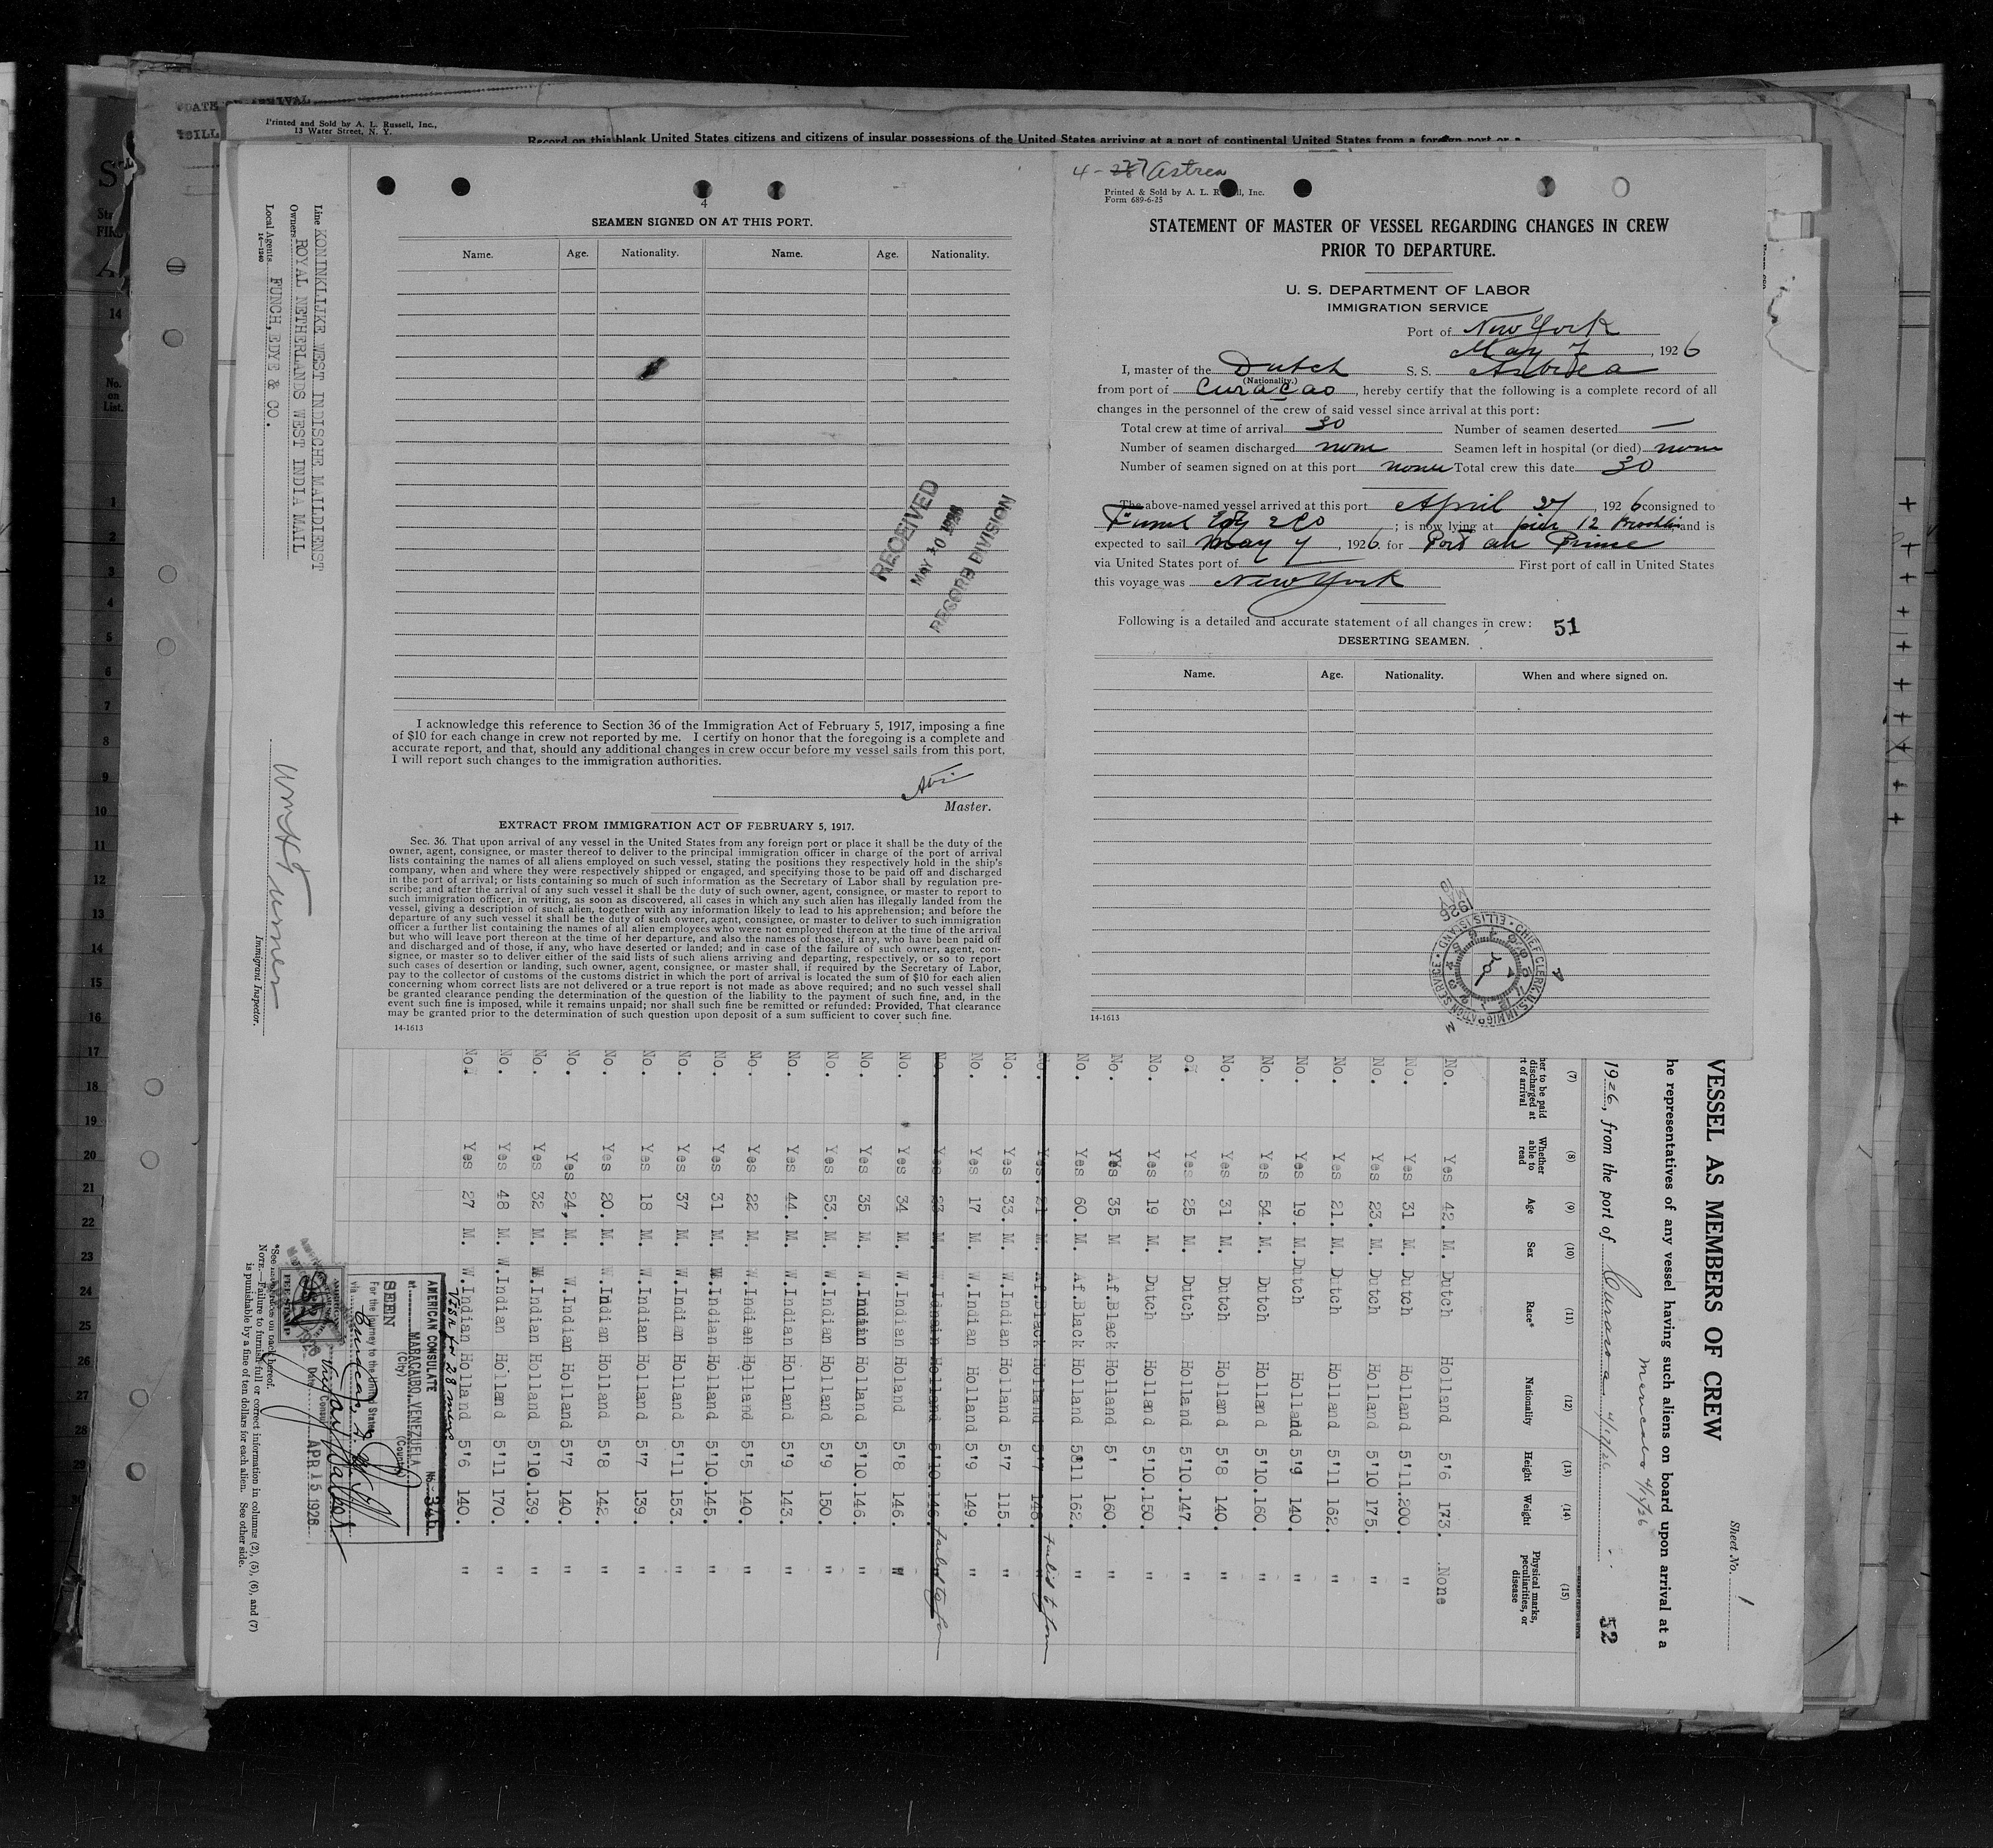 DATE OF ARRIVAL
Printed and Sold by A. L. Russell, Inc.,
13 Water Street, N. Y.
Record on this blank United States citizens and citizens of insular possessions of the United States arriving at a port of continental United States from a foreign port or a
4
SEAMEN SIGNED ON AT THIS PORT.
Name. Age. Nationality. Name. Age. Nationality.
RECEIVED
MAY 10 1926
RECORD DIVISION
I acknowledge this reference to Section 36 of the Immigration Act of February 5, 1917, imposing a fine
of $10 for each change in crew not reported by me. I certify on honor that the foregoing is a complete and
accurate report, and that, should any additional changes in crew occur before my vessel sails from this port,
I will report such changes to the immigration authorities.
Master.
EXTRACT FROM IMMIGRATION ACT OF FEBRUARY 5, 1917.
Sec. 36. That upon arrival of any vessel in the United States from any foreign port or place it shall be the duty of the
owner, agent, consignee, or master thereof to deliver to the principal immigration officer in charge of the port of arrival
lists containing the names of all aliens employed on such vessel, stating the positions they respectively hold in the ship's
company, when and where they were respectively shipped or engaged, and specifying those to be paid off and discharged
in the port of arrival; or lists containing so much of such information as the Secretary of Labor shall by regulation pre-
scribe; and after the arrival of any such vessel it shall be the duty of such owner, agent, consignee, or master to report to
such immigration officer, in writing, as soon as discovered, all cases in which any such alien has illegally landed from the
vessel, giving a description of such alien, together with any information likely to lead to his apprehension; and before the
departure of any such vessel it shall be the duty of such owner, agent, consignee, or master to deliver to such immigration
officer a further list containing the names of all alien employees who were not employed thereon at the time of the arrival
but who will leave port thereon at the time of her departure, and also the names of those, if any, who have been paid off
and discharged and of those, if any, who have deserted or landed; and in case of the failure of such owner, agent, con-
signee, or master so to deliver either of the said lists of such aliens arriving and departing, respectively, or so to report
such cases of desertion or landing, such owner, agent, consignee, or master shall, if required by the Secretary of Labor,
pay to the collector of customs of the customs district in which the port of arrival is located the sum of $10 for each alien
concerning whom correct lists are not delivered or a true report is not made as above required; and no such vessel shall
be granted clearance pending the determination of the question of the liability to the payment of such fine, and, in the
event such fine is imposed, while it remains unpaid; nor shall such fine be remitted or refunded: Provided, That clearance
may be granted prior to the determination of such question upon deposit of a sum sufficient to cover such fine.
14-1613
4- 277 Astrea
Printed & Sold by A. L. Russell, Inc.
Form 689-6-25
STATEMENT OF MASTER OF VESSEL REGARDING CHANGES IN CREW
PRIOR TO DEPARTURE.
U. S. DEPARTMENT OF LABOR
IMMIGRATION SERVICE
Port of New York
May 7, 1926
I, master of the Dutch S. S. Astrea
(Nationality.)
from port of Curaçao, hereby certify that the following is a complete record of all
changes in the personnel of the crew of said vessel since arrival at this port:
Total crew at time of arrival 30 Number of seamen deserted —
Number of seamen discharged none Seamen left in hospital (or died) none
Number of seamen signed on at this port none Total crew this date 30
The above-named vessel arrived at this port April 27, 1926 consigned to
Funch Edy & Co; is now lying at pier 12 Brooklin and is
expected to sail May 7, 1926. for Port au Prince
via United States port of First port of call in United States
this voyage was New York
Following is a detailed and accurate statement of all changes in crew: 51
DESERTING SEAMEN.
Name. Age. Nationality. When and where signed on.
CHIEF CLERK U.S. IMMIGRATION SERVICE ELLIS ISLAND
1926
14-1613
Line KONINKLIJKE WEST INDISCHE MAILDIENST
Owners ROYAL NETHERLANDS WEST INDIA MAIL
Local Agents FUNCH, EDYE & CO.
14-1240
Wm H Turner
Immigrant Inspector.
Sheet No. 1
VESSEL AS MEMBERS OF CREW
he representatives of any vessel having such aliens on board upon arrival at a
1926, from the port of Curasao 4/17/26
52
(7) (8) (9) (10) (11) (12) (13) (14) (15)
her to be paid discharged at rt of arrival Whether able to read Age Sex Race* Nationality Height Weight Physical marks, peculiarities, or disease
No. Yes 42. M. Dutch Holland 5'6 173. None
No. Yes 31 M. Dutch Holland 5'11. 200. "
No. Yes 23. M. Dutch Holland 5'10 175. "
No. Yes 21. M. Dutch Holland 5'11 162. "
No. Yes 19. M. Dutch Holland 5'9 140. "
No. Yes 54. M. Dutch Holland 5'10. 160. "
No. Yes 31 M. Dutch Holland 5'8 140. "
No. Yes 25 M. Dutch Holland 5'10. 147. "
No. Yes 19 M. Dutch Holland 5'10. 150. "
No. Yes 35 M. Af.Black Holland 5' 160. "
No. Yes 60. M. Af.Black Holland 5'11 162. "
No. Yes. 21 M. Af.Black Holland 5'7 148. failed to join
No. Yes 33. M. W.Indian Holland 5'7 115. "
No. Yes 17 M. W.Indian Holland 5'9 149. "
No. Yes 23 M. W.Indain Holland 5'10. 146. failed to join
No. Yes 34 M. W.Indian Holand 5'8 146. "
No. Yes 35 M. W.Indian Holland 5'10. 146. "
No. Yes 53. M. W.Indian Holland 5'9 150. "
No. Yes 44. M. W.Indian Holland 5'9 143. "
No. Yes 22 M. W.Indian Holland 5'5 140. "
No. Yes 31 M. W.Indian Holland 5'10. 145. "
No. Yes 37 M. W.Indian Holland 5'11 153. "
No. Yes 18 M. W.Indian Holland 5'7 139. "
No. Yes 20. M. W.Indian Holland 5'8 142. "
No. Yes 24, M. W.Indian Holland 5'7 140. "
No. Yes 32 M. W.Indian Holland 5'10. 139. "
No. Yes 48 M. W.Indian Holland 5'11 170. "
No. Yes 27 M. W.Indian Holland 5'6 140. "
Visa for 28 mens
AMERICAN CONSULATE No. 346
at MARACAIBO, VENEZUELA
(City) (Country)
SEEN
For the journey to the United States
via Curacao
Vice Consul
Date APR 15 1926
FEE STAMP
*See list of races on back hereof.
NOTE.—Failure to furnish full or correct information in columns (2), (5), (6), and (7)
is punishable by a fine of ten dollars for each alien. See other side.